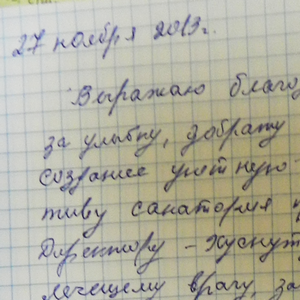 27 ноября 2013г.
Выражаю благо
за улыбку, доброту
создание уютную
тиву санатория
Директору - Хуснут
лечащему врачу, за